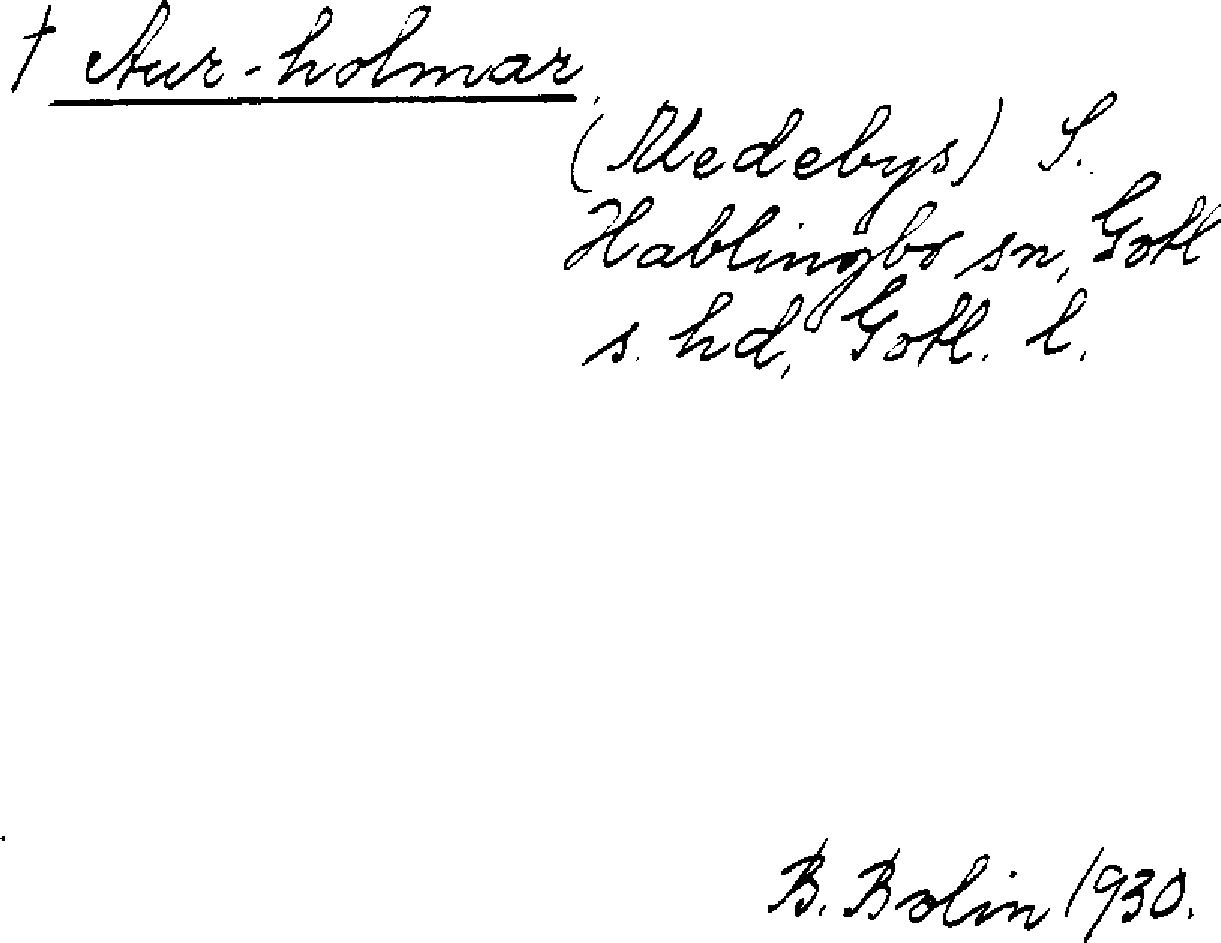 † Aur-holmar
(Medebys) S.
Hablingbo sn, Gotl
s. hd, Gotl. l.
B. Bolin 1930.